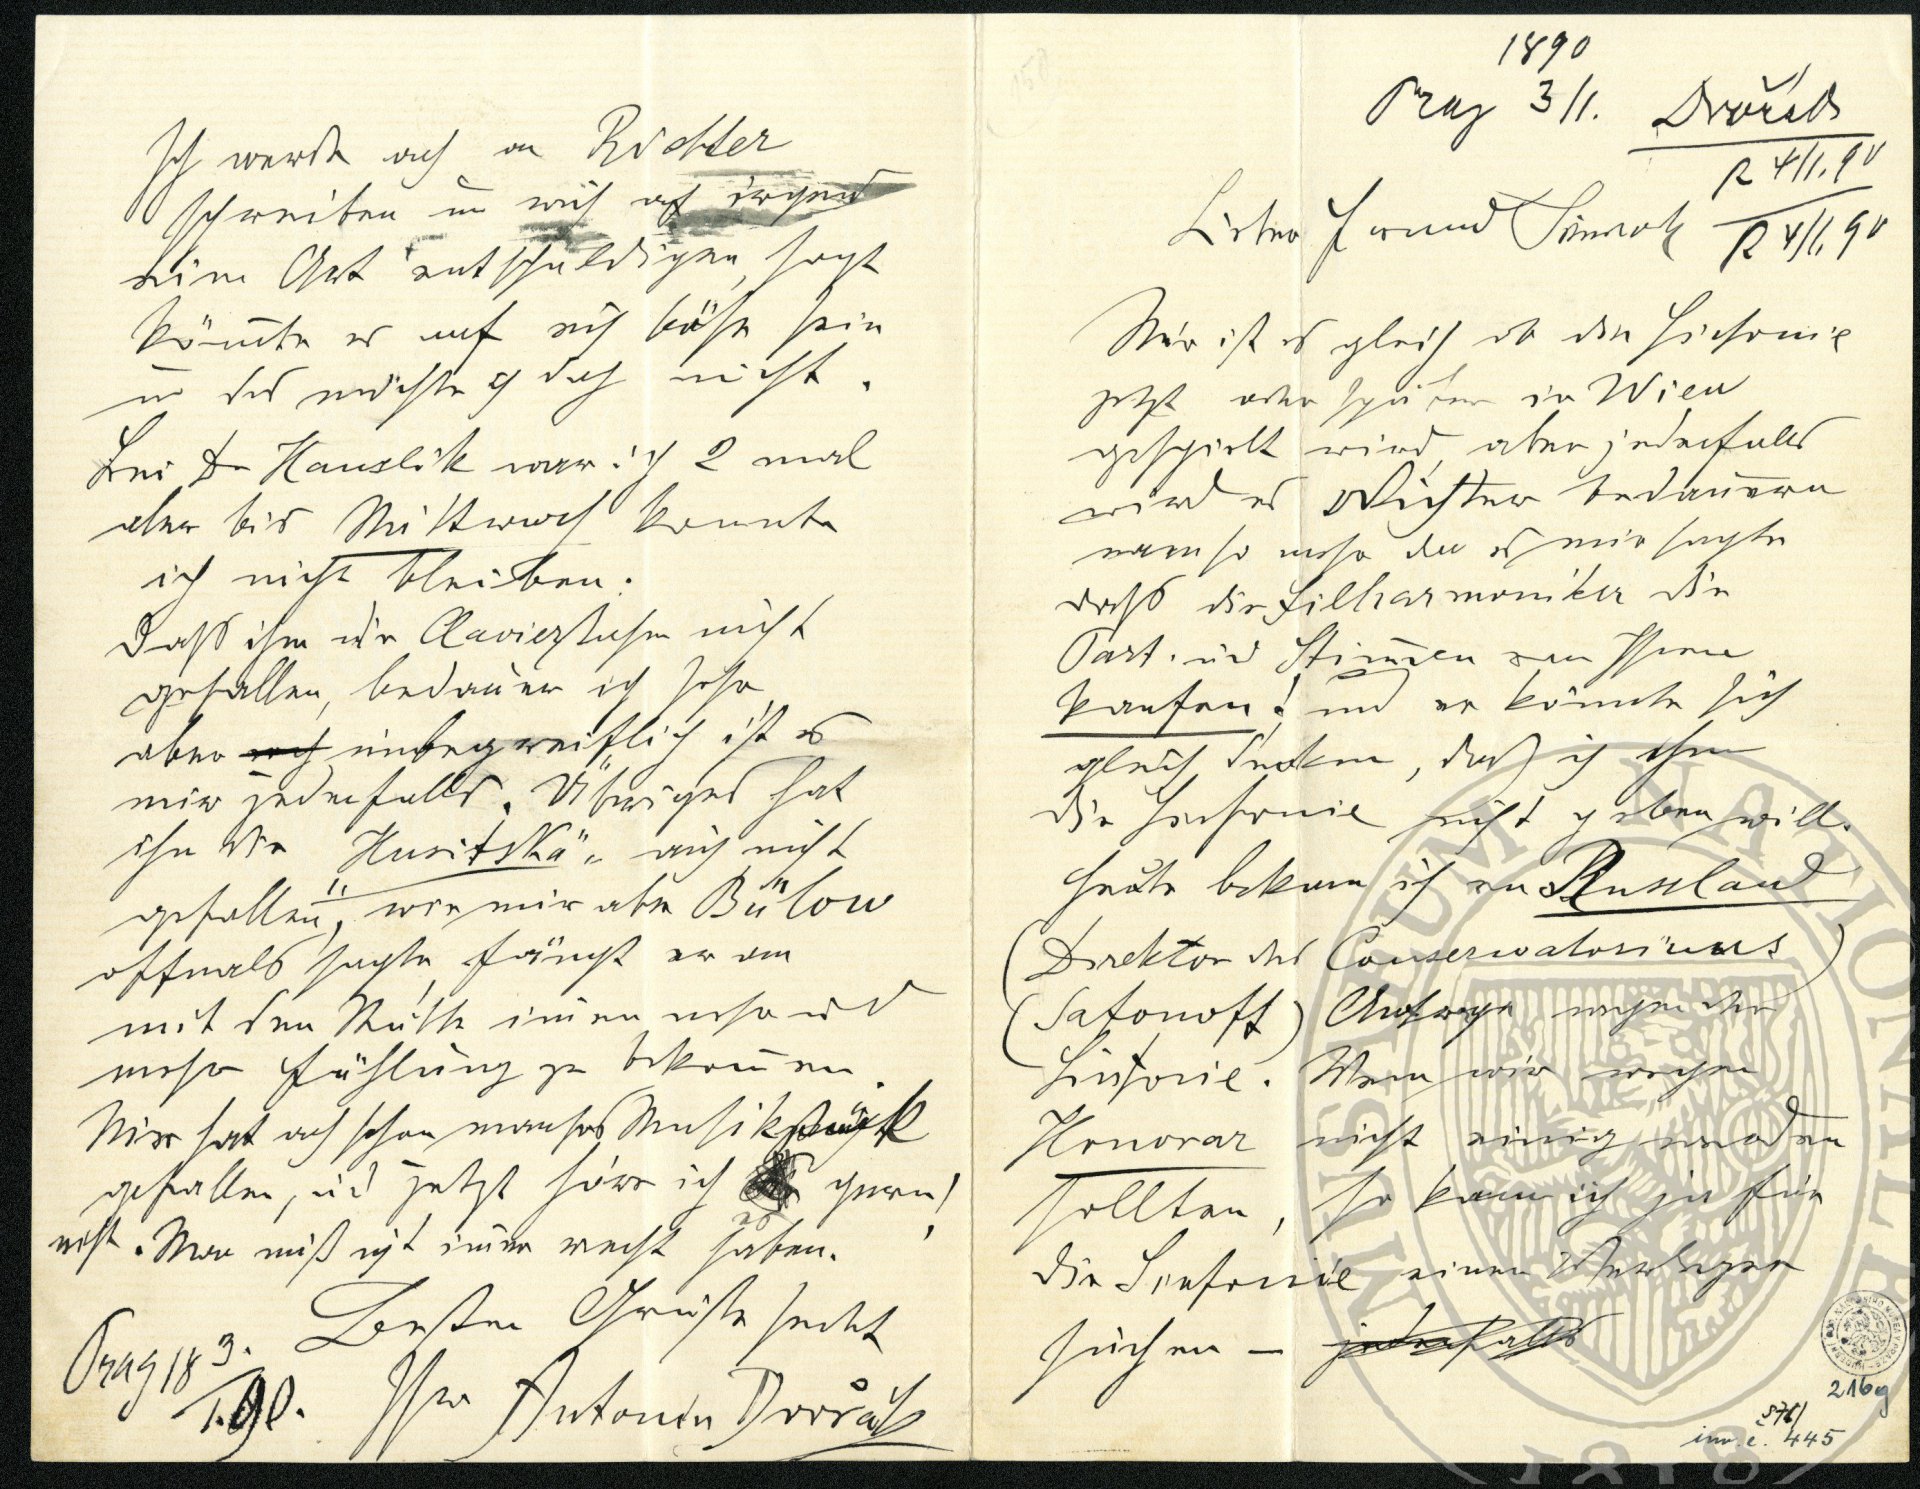 1890
Prag 3/1.
Dvořák
R 4/1.90
R 4/1.90
Lieber Freund Simrock
Mir ist es gleich ob die Sinfonie
jetzt oder später in Wien
gespielt wird, aber jedenfalls
wird es Richter bedauern
umso mehr da er mir sagte
dass die Filharmoniker die
Part. und Stim̅en von Ihnen
kaufen! und er könnte sich
gleich denken, daß ich ihm
die Sinfonie nicht geben will.
Heute bekam ich von Russland
(Direktor des Conservatoriums)
(Safonoff) Anfrage wegen der
Sinfonie. Wenn wir wegen
Honorar nicht einig werden
sollten, so kann ich ja für
die Sinfonie einen Verleger
suchen – jedenfalls
Ich werde auch an Richter
schreiben u̅ mich auf irgend
eine Art entschuldigen, sonst
kön̅te er auf mich böse sein
u̅ das möchte ich doch nicht.
Bei Dr Hanslik war ich 2 mal
aber bis Mittwoch konnte
ich nicht bleiben.
Daß ihm die Clavierstücke nicht
gefallen, bedauere ich sehr
aber unbegreiflich ist es
mir jedenfalls. Übriges hat
ihm die „Husitská" auch nicht
gefallen, wie mir aber Bülow
oftmals sagte, fängt er an
mit dem Stücke immer mehr und
mehr Fühlung zu bekom̅en.
Mir hat auch schon manches Musikstück
gefallen, und jetzt höre ich es gern!
nicht. Man muß nicht im̅er recht haben.
Besten Grüße sendet
Ihr Antonín Dvořák
Prag 18 3./1. 90.
MUSEUM NATIONALE
1818
216g
S76/
inv. č. 445